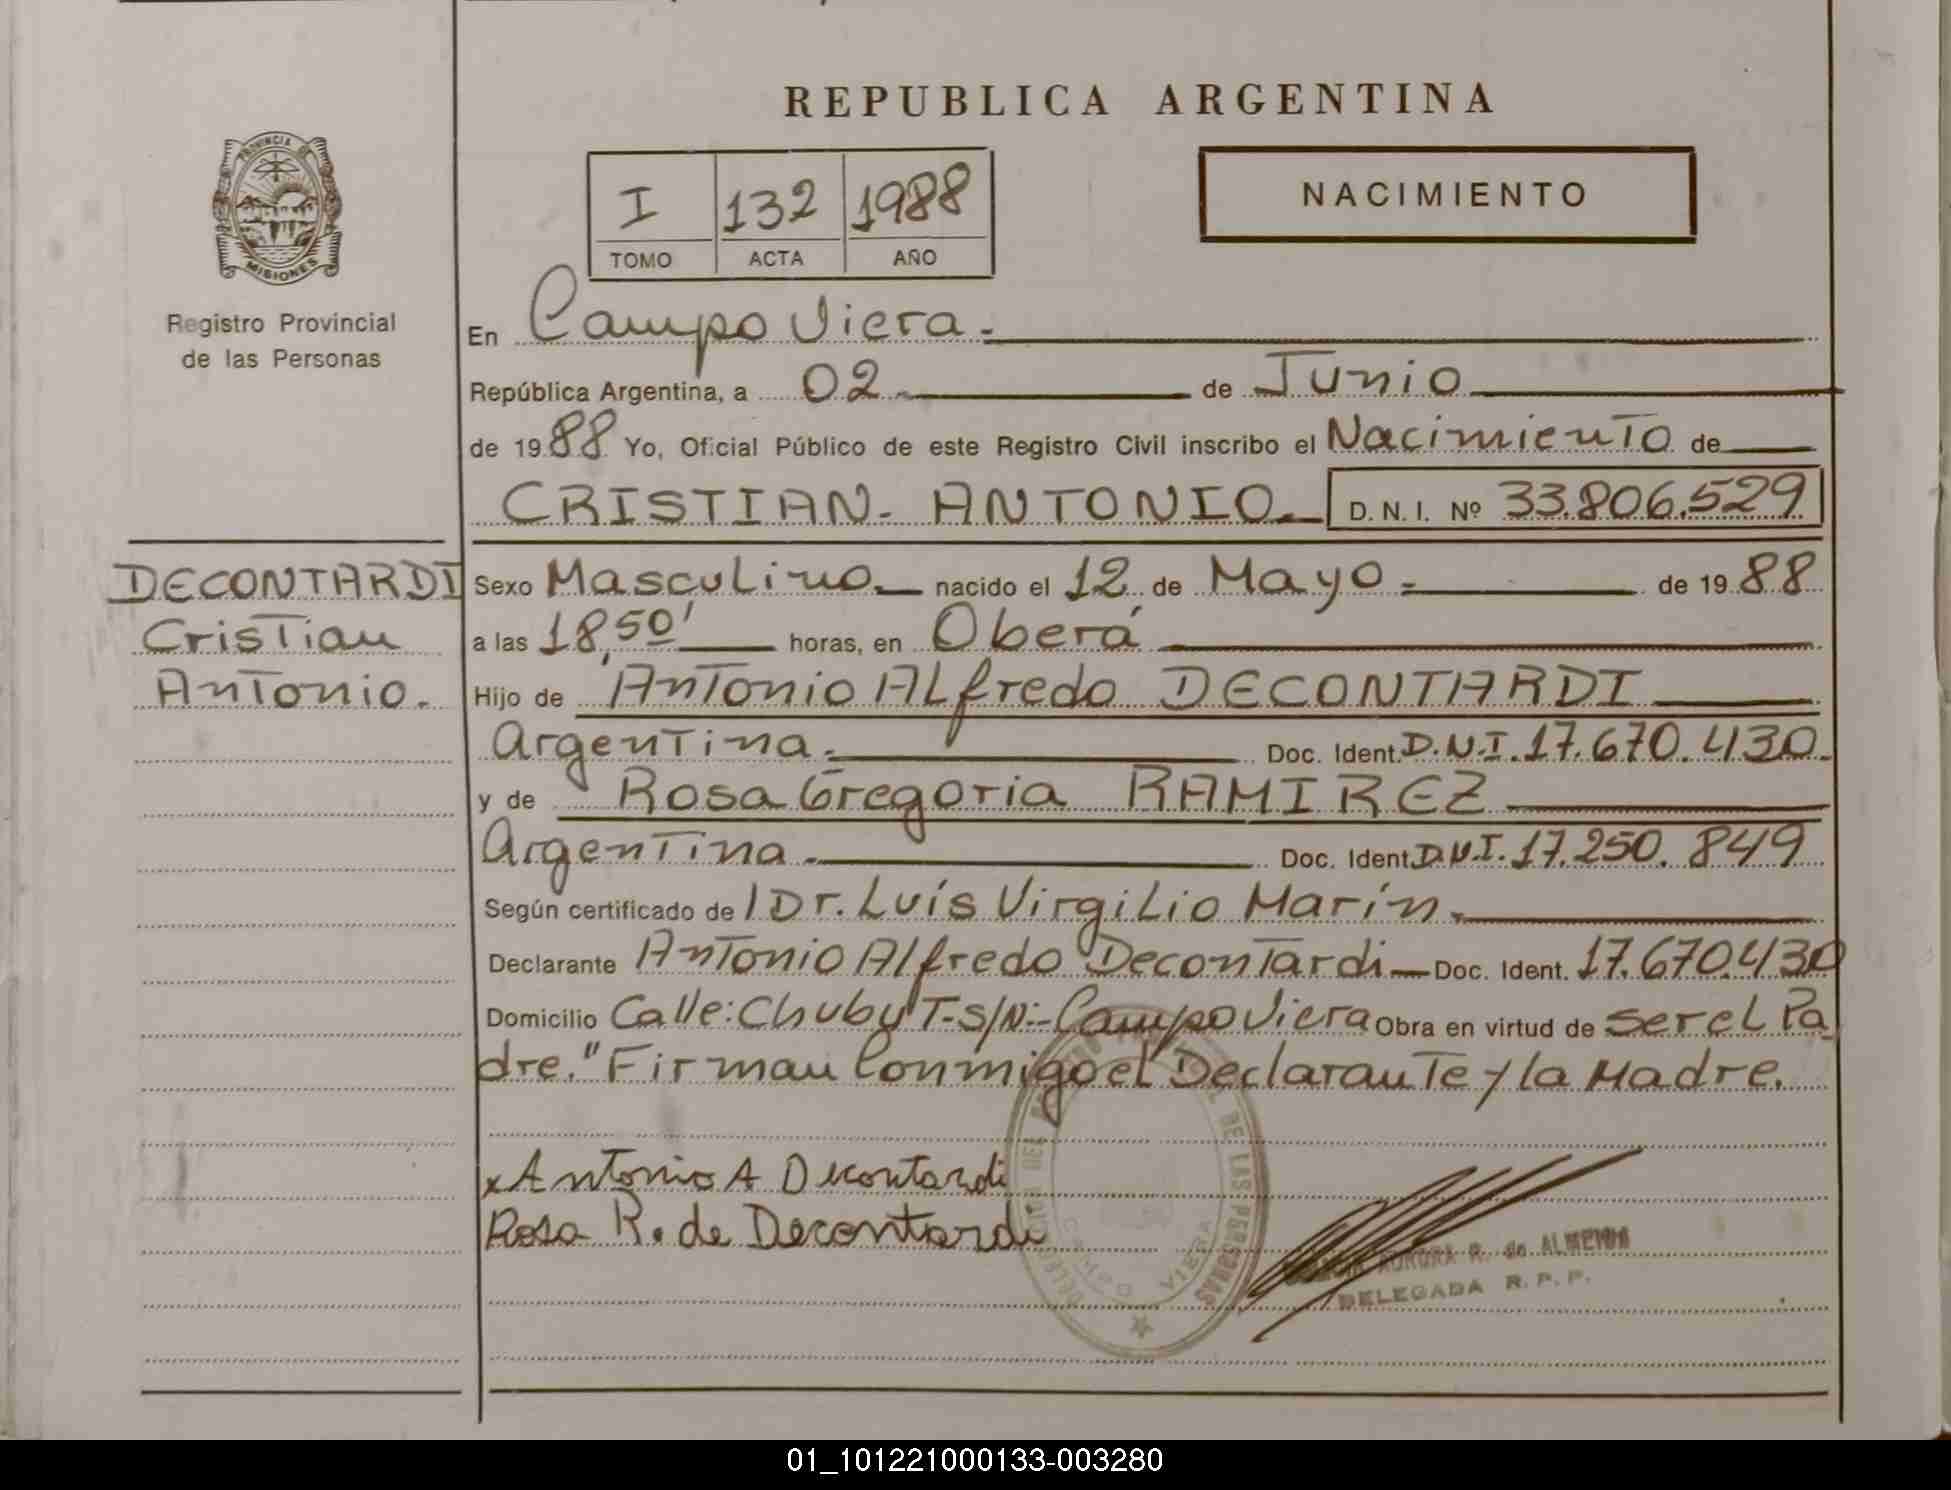 REPUBLICA ARGENTINA
PROVINCIA DE
MISIONES
Registro Provincial
de las Personas
I 132 1988
TOMO ACTA AÑO
NACIMIENTO
En Campo Viera.-
República Argentina, a 02 de Junio
de 1988 Yo, Oficial Público de este Registro Civil inscribo el Nacimiento de
CRISTIAN. ANTONIO. D. N. I. Nº 33.806.529
DECONTARDI
Cristian
Antonio.
Sexo Masculino nacido el 12 de Mayo de 1988
a las 18,50' horas, en Oberá
Hijo de Antonio Alfredo DECONTARDI
Argentina. Doc. Ident. D.N.I. 17.670.430.
y de Rosa Gregoria RAMIREZ
Argentina. Doc. Ident. D.N.I. 17.250.849
Según certificado de / Dr. Luís Virgilio Marín.
Declarante Antonio Alfredo Decontardi Doc. Ident. 17.670.430
Domicilio Calle: Chubut-S/N:- Campo Viera Obra en virtud de ser el Pa
dre." Firman Conmigo el Declarante y la Madre.
x Antonio A Decontardi
Rosa R. de Decontardi
DE LAS PERSONAS
CAMPO VIERA
AURORA R. de ALMEIDA
DELEGADA R. P. P.
01_101221000133-003280